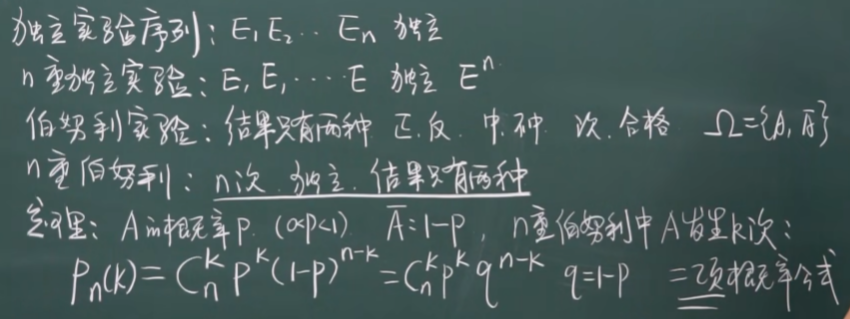 独立实验序列: E₁ E₂ ‥ Eₙ 独立
n重独立实验: E, E, ‥‥ E 独立 Eⁿ
伯努利实验: 结果只有两种 正.反. 中.不中 次.合格 Ω={A, Ā}
n重伯努利: n次.独立.结果只有两种
定理: A的概率P. (0<P<1) Ā=1-P, n重伯努利中A发生k次:
Pₙ(k)=Cₙᵏ Pᵏ(1-P)ⁿ⁻ᵏ=Cₙᵏ Pᵏ qⁿ⁻ᵏ q=1-P 二项概率公式